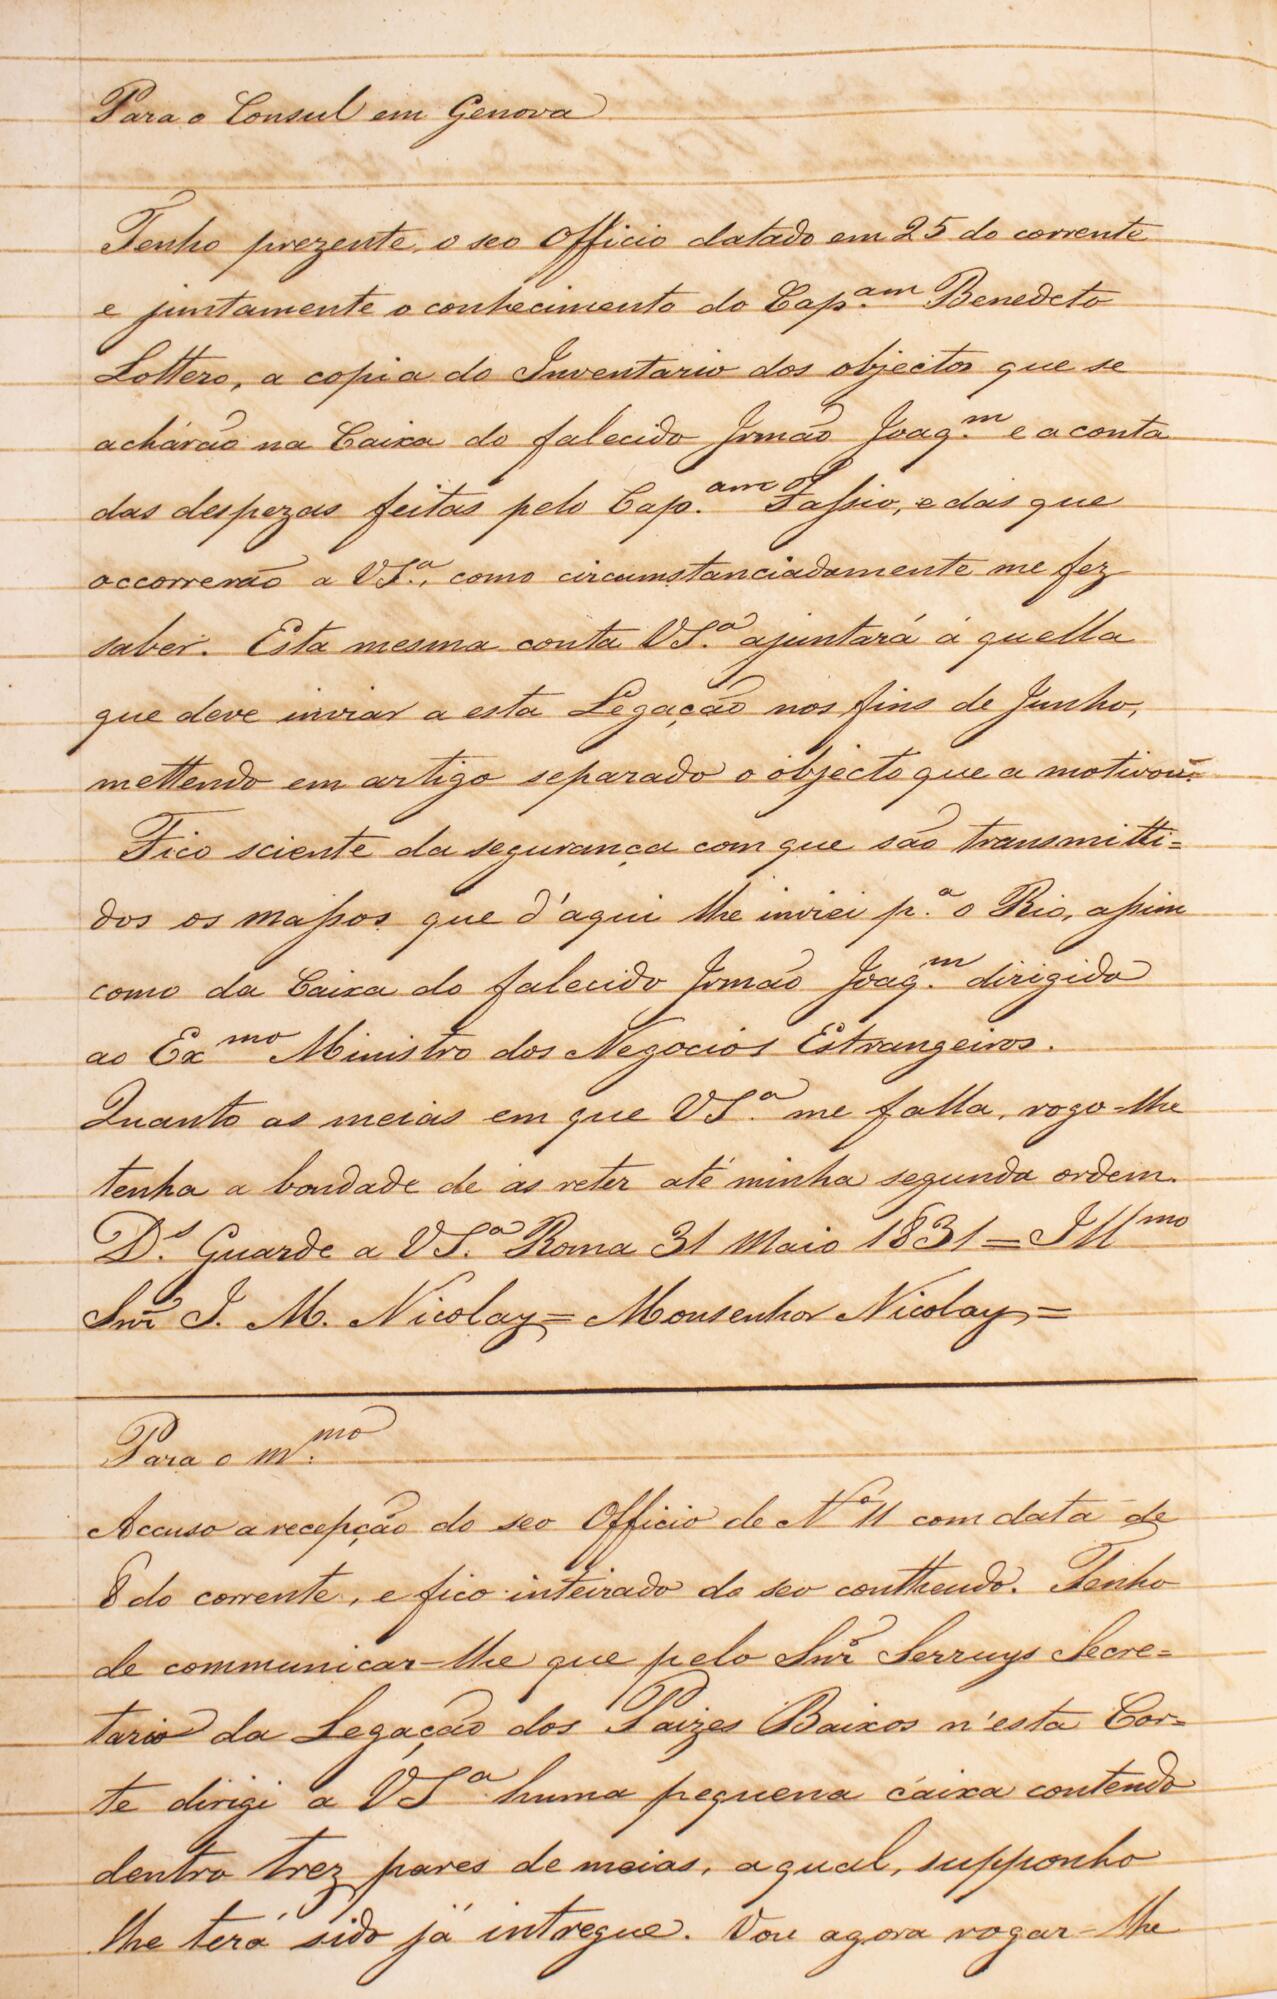 Para o Consul em Genova
Tenho prezente, o seo Officio datado em 25 do corrente
e juntamente o conhecimento do Cap.am Benedeto
Lottero, a copia do Inventario dos objectos que se
achárão na Caixa do falecido Irmão Joaq.m e a conta
das despezas feitas pelo Cap.am Fassio, e das que
occorrerão a VS.a, como circumstanciadamente me fez
saber. Esta mesma conta VS.a ajuntará á quella
que deve inviar a esta Legação nos fins de Junho,
mettendo em artigo separado o objecto que a motivou.
Fico sciente da segurança com que são transmitti=
dos os massos que d'aqui lhe inviei p.a o Rio, assim
como da Caixa do falecido Irmão Joaq.m dirigida
ao Exmo Ministro dos Negocios Estrangeiros.
Quanto as meias em que VS.a me falla, rogo-lhe
tenha a bondade de as reter até minha segunda ordem.
D.s Guarde a VS.a Roma 31 Maio 1831 = Illmo
Snr̃ J. M. Nicolay = Monsenhor Nicolay =
Para o m.mo
Accuso a recepção do seo Officio de Nº 11 com data de
8 do corrente, e fico inteirado do seo contheudo. Tenho
de communicar-lhe que pelo Snr̃ Serruys Secre=
tario da Legação dos Paizes Baixos n'esta Cor=
te dirigi a VS.a huma pequena caixa contendo
dentro trez pares de meias, a qual, supponho
lhe terá sido já intregue. Vou agora rogar-lhe